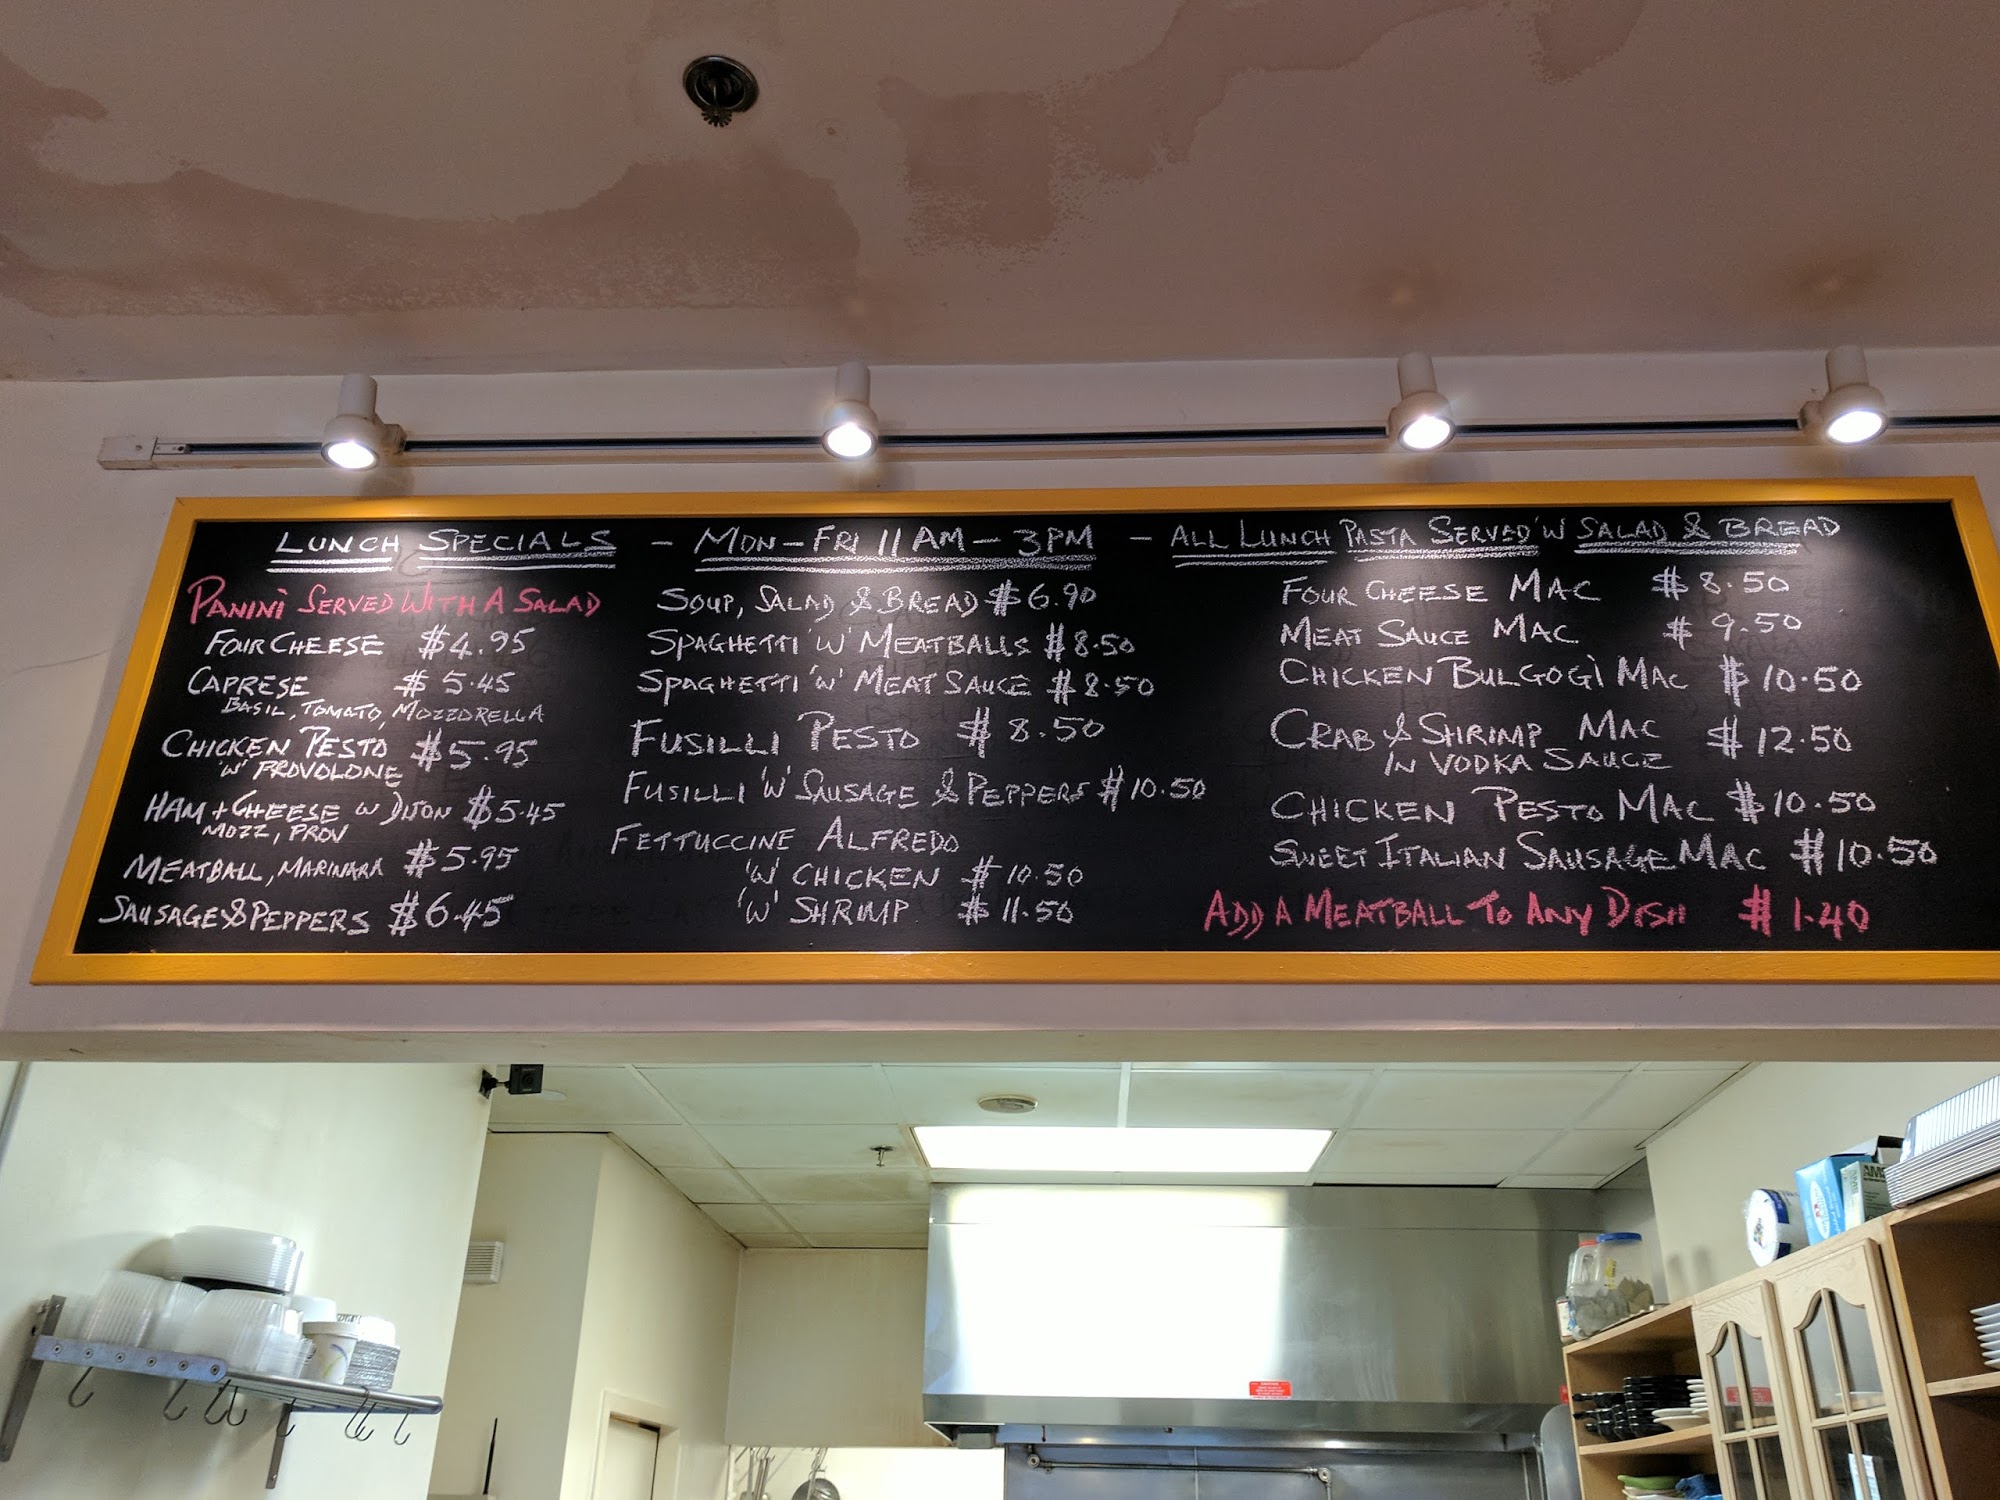 LUNCH SPECIALS - MON-FRI 11AM-3PM - ALL LUNCH PASTA SERVED 'W' SALAD & BREAD
PANINI SERVED WITH A SALAD
FOUR CHEESE $4.95
CAPRESE $5.45
BASIL, TOMATO, MOZZORELLA
CHICKEN PESTO $5.95
'W' PROVOLONE
HAM + CHEESE W DIJON $5.45
MOZZ, PROV
MEATBALL, MARINARA $5.95
SAUSAGE & PEPPERS $6.45
SOUP, SALAD & BREAD $6.90
SPAGHETTI 'W' MEATBALLS $8.50
SPAGHETTI 'W' MEAT SAUCE $8.50
FUSILLI PESTO $8.50
FUSILLI 'W' SAUSAGE & PEPPERS $10.50
FETTUCCINE ALFREDO
'W' CHICKEN $10.50
'W' SHRIMP $11.50
FOUR CHEESE MAC $8.50
MEAT SAUCE MAC $9.50
CHICKEN BULGOGI MAC $10.50
CRAB & SHRIMP MAC $12.50
IN VODKA SAUCE
CHICKEN PESTO MAC $10.50
SWEET ITALIAN SAUSAGE MAC $10.50
ADD A MEATBALL TO ANY DISH $1.40